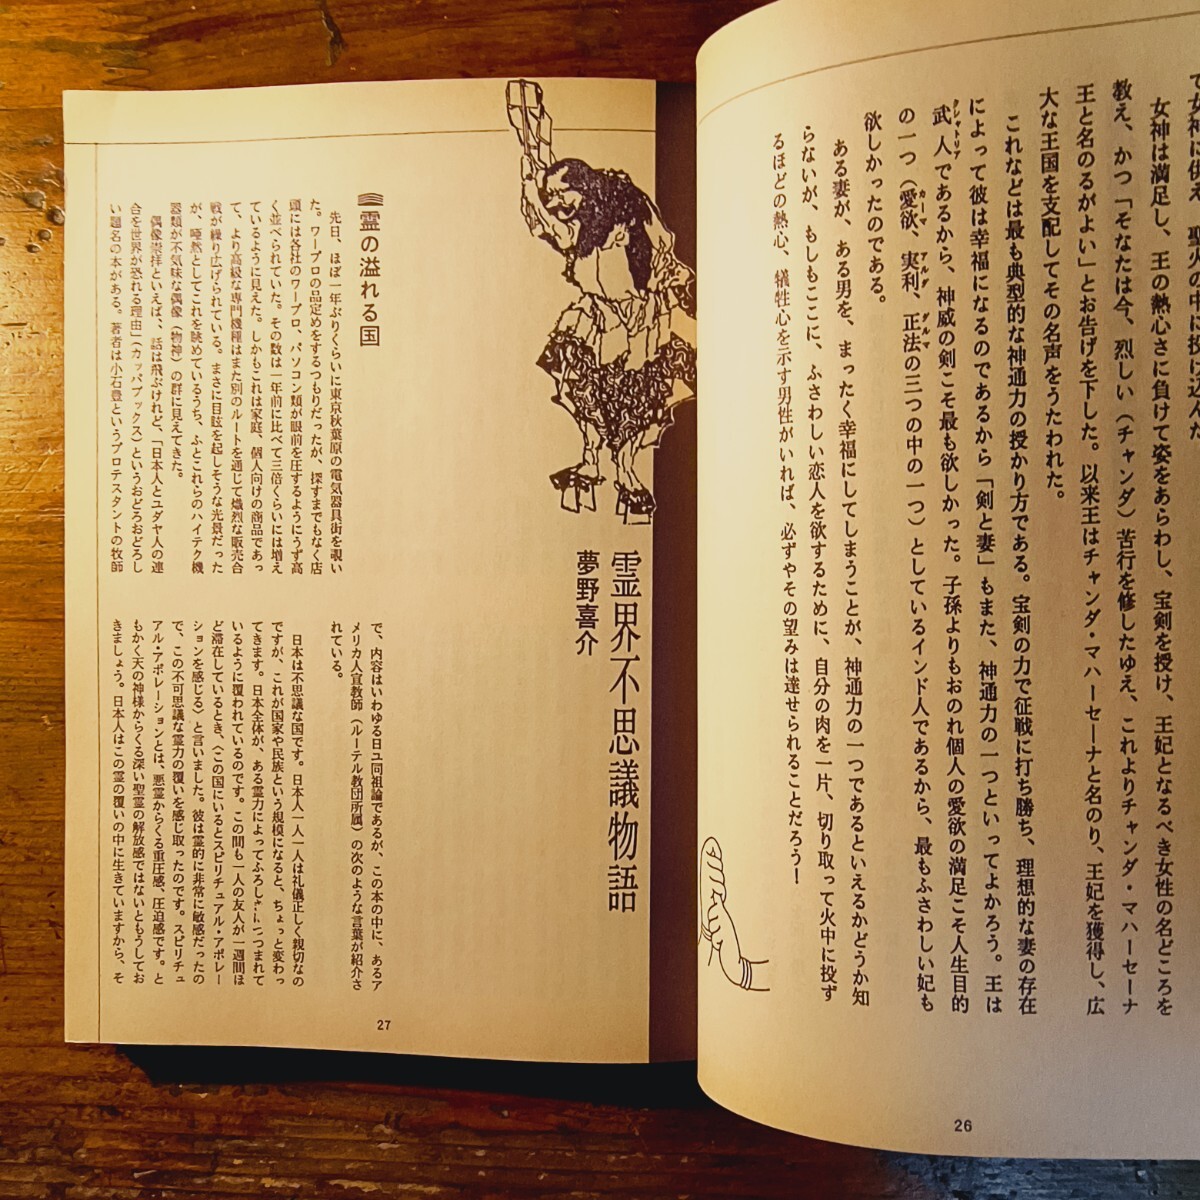 で女神に供え、聖火の中に投げ込んだ
女神は満足し、王の熱心さに負けて姿をあらわし、宝剣を授け、王妃となるべき女性の名どころを
教え、かつ「そなたは今、烈しい（チャンダ）苦行を修したゆえ、これよりチャンダ・マハーセーナ
王と名のるがよい」とお告げを下した。以来王はチャンダ・マハーセーナと名のり、王妃を獲得し、広
大な王国を支配してその名声をうたわれた。
これなどは最も典型的な神通力の授かり方である。宝剣の力で征戦に打ち勝ち、理想的な妻の存在
によって彼は幸福になるのであるから「剣と妻」もまた、神通力の一つといってよかろう。王は
武人であるから、神威の剣こそ最も欲しかった。子孫よりもおのれ個人の愛欲の満足こそ人生目的
クシャトリア
の一つ（愛欲、実利、正法の三つの中の一つ）としているインド人であるから、最もふさわしい妃も
カーマ アルタ ダルマ
欲しかったのである。
ある妻が、ある男を、まったく幸福にしてしまうことが、神通力の一つであるといえるかどうか知
らないが、もしもここに、ふさわしい恋人を欲するために、自分の肉を一片、切り取って火中に投ず
るほどの熱心、犠牲心を示す男性がいれば、必ずやその望みは達せられることだろう！
26
霊界不思議物語
夢野喜介
霊の溢れる国
先日、ほぼ一年ぶりくらいに東京秋葉原の電気器具街を覗い
た。ワープロの品定めをするつもりだったが、探すまでもなく店
頭には各社のワープロ、パソコン類が眼前を圧するようにうず高
く並べられていた。その数は一年前に比べて三倍くらいには増え
ているように見えた。しかもこれは家庭、個人向けの商品であっ
て、より高級な専門機種はまた別のルートを通じて熾烈な販売合
戦が繰り広げられている。まさに目眩を起しそうな光景だった
が、唖然としてこれを眺めているうち、ふとこれらのハイテク機
器類が不気味な偶像（物神）の群に見えてきた。
偶像崇拝といえば、話は飛ぶけれど、「日本人とユダヤ人の連
合を世界が恐れる理由」（カッパブックス）というおどろおどろし
い題名の本がある。著者は小石豊というプロテスタントの牧師
で、内容はいわゆる日ユ同祖論であるが、この本の中に、あるア
メリカ人宣教師（ルーテル教団所属）の次のような言葉が紹介さ
れている。
日本は不思議な国です。日本人一人一人は礼儀正しく親切なの
ですが、これが国家や民族という規模になると、ちょっと変わっ
てきます。日本全体が、ある霊力によってふろしきにつつまれて
いるように覆われているのです。この間も一人の友人が一週間ほ
ど滞在しているとき、〈この国にいるとスピリチュアル・アポレー
ションを感じる〉と言いました。彼は霊的に非常に敏感だったの
で、この不可思議な霊力の覆いを感じ取ったのです。スピリチュ
アル・アポレーションとは、悪霊からくる重圧感、圧迫感です。と
もかく天の神様からくる深い聖霊の解放感ではないともうしてお
きましょう。日本人はこの霊の覆いの中に生きていますから、そ
27